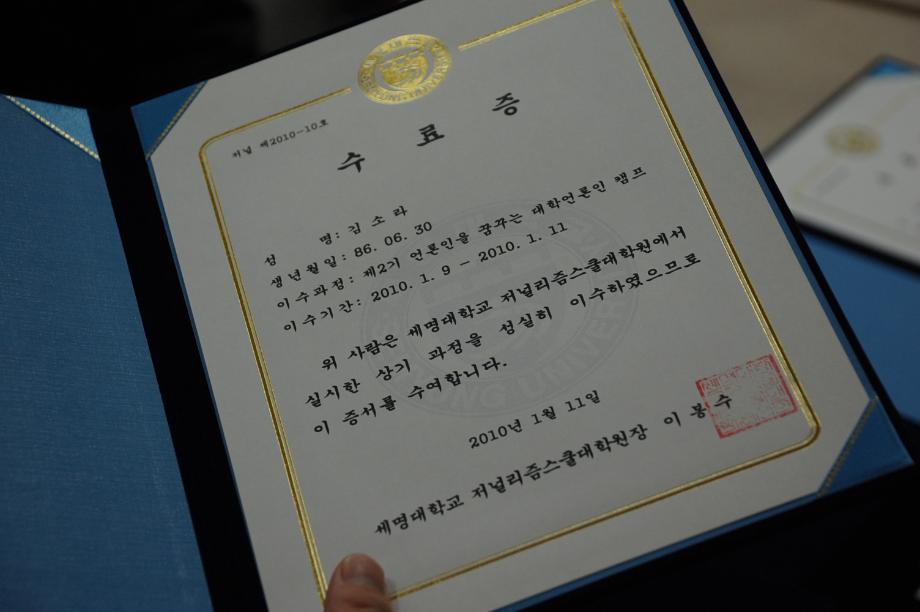 저널 제2010-10호
수 료 증
성 명: 김 소 라
생년월일: 86. 06. 30
이수과정: 제2기 언론인을 꿈꾸는 대학언론인 캠프
이수기간: 2010. 1. 9 - 2010. 1. 11
위 사람은 세명대학교 저널리즘스쿨대학원에서
실시한 상기 과정을 성실히 이수하였으므로
이 증서를 수여합니다.
2010년 1월 11일
세명대학교 저널리즘스쿨대학원장 이 봉 수